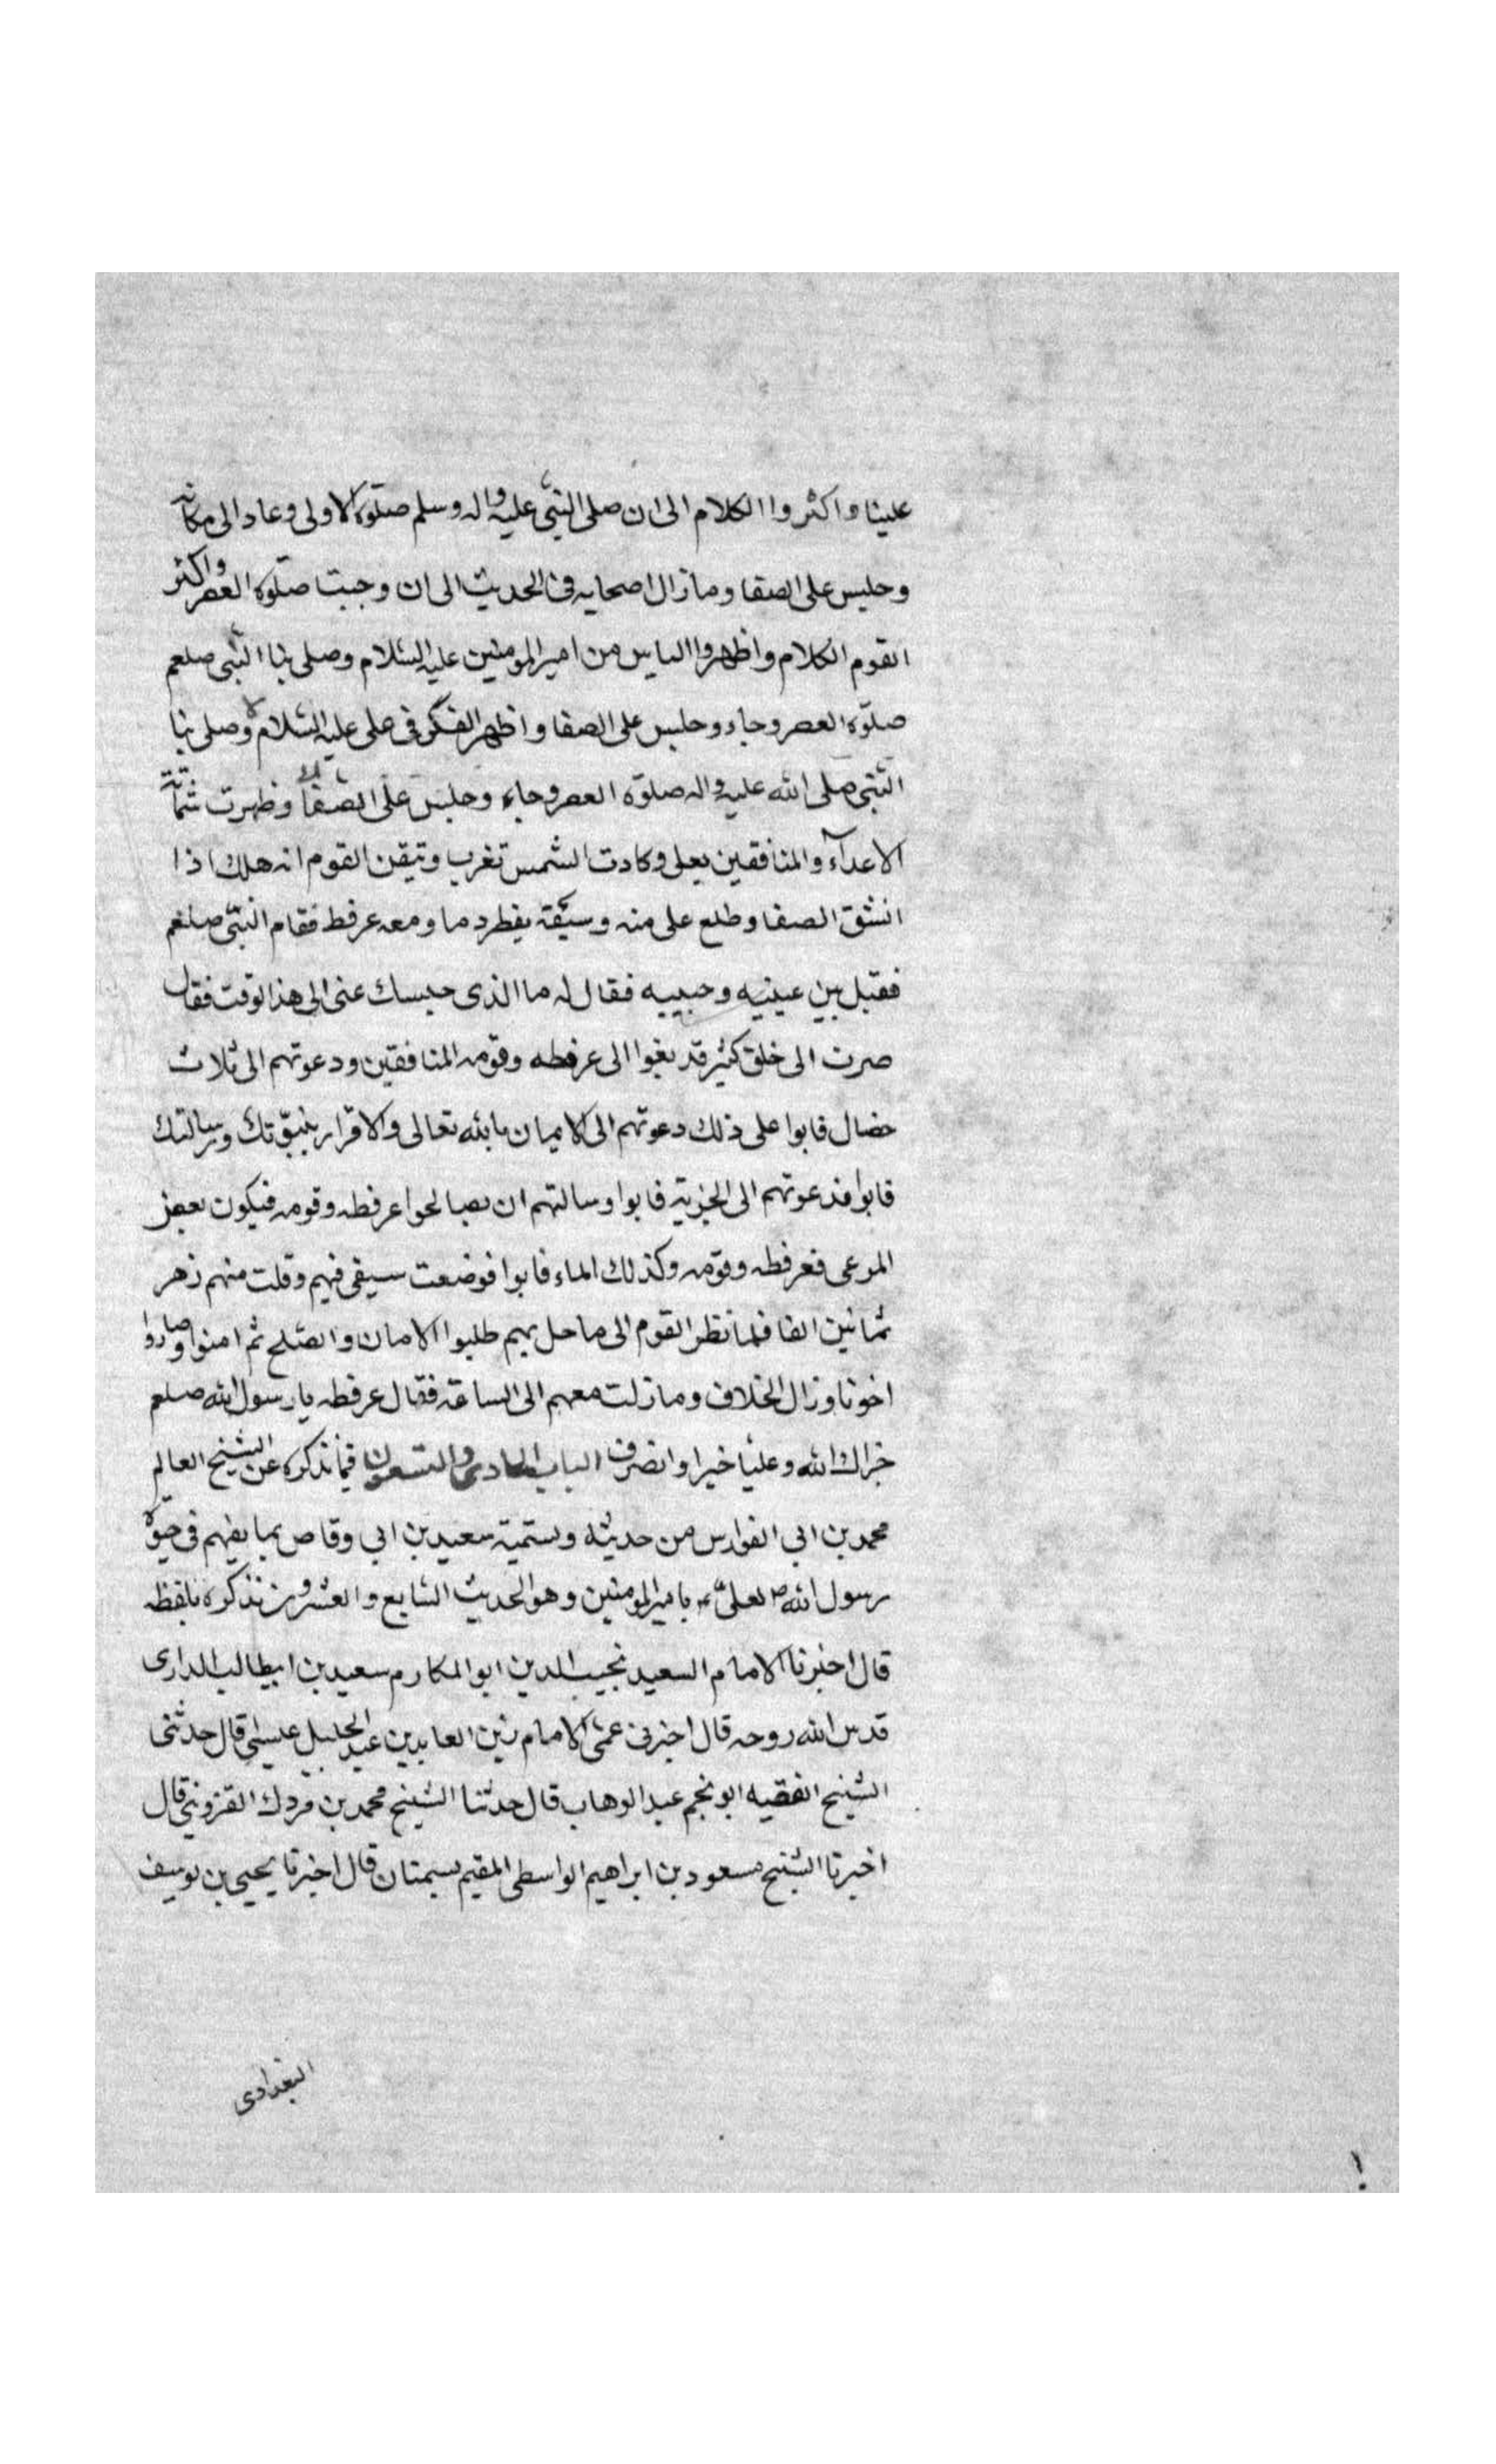 علينا واكثروا الكلام الى ان صلى النبى عليه واله وسلم صلوة الاولى وعاد الى مكانه
وجلس على الصفا وما زال اصحابه فى الحديث الى ان وجبت صلوة العصر واكثر
القوم الكلام واظهروا الياس من امير المومنين عليه السلام وصلى بنا النبى صلعم
صلوة العصر وجاء وجلس على الصفا واظهر الفكر فى على عليه السلام وصلى بنا
النبى صلى الله عليه واله صلوة العصر وجاء وجلس على الصفا وظهرت شماتة
الاعداء والمنافقين بعلى وكادت الشمس تغرب وتيقن القوم انه هلك اذا
انشق الصفا وطلع على منه وسيفه يقطر دما ومعه عرفط فقام النبى صلعم
فقبل بين عينيه وجبيبه فقال له ما الذى حبسك عنى الى هذا لوقت فقال
صرت الى خلق كثير قد بغوا الى عرفطه وقومه المنافقين ودعوتهم الى ثلاث
خصال فابوا على ذلك دعوتهم الى الايمان بالله تعالى والاقرار بنبوتك ورسالتك
فابوا فدعوتهم الى الجزية فابوا وسالتهم ان يصالحوا عرفطه وقومه فيكون بعض
المرعى فعرفطه وقومه وكذلك الماء فابوا فوضعت سيفى فيهم وقلت منهم زهر
ثمانين الفا فلما نظر القوم الى ما حل بهم طلبوا الامان والصلح ثم امنوا وصاروا
اخونا وزال الخلاف وما زلت معهم الى الساعة فقال عرفطه يا رسول الله صلعم
جزاك الله وعليا خيرا وانصرف الباب الحادى والتسعون فيما نذكره عن الشيخ العالم
محمد بن ابى الفوارس من حديثه وتسمية سعيد بن ابي وقاص بما يفهم فى حيوة
رسول الله ص لعلى ع بامير المومنين وهو الحديث السابع والعشرون نذكره بلفظه
قال اخبرنا الامام السعيد نجيب الدين ابو المكارم سعيد بن ابيطالب الدارى
قدس الله روحه قال اخبرنى عمى الامام زين العابدين عبد الجليل عيسى قال حدثنى
الشيخ الفقيه ابو نجم عبد الوهاب قال حدثنا الشيخ محمد بن مردك القزوينى قال
اخبرنا الشيخ مسعود بن ابراهيم الواسطى المقيم بسمنان قال اخبرنا يحيى بن يوسف
البغدادى